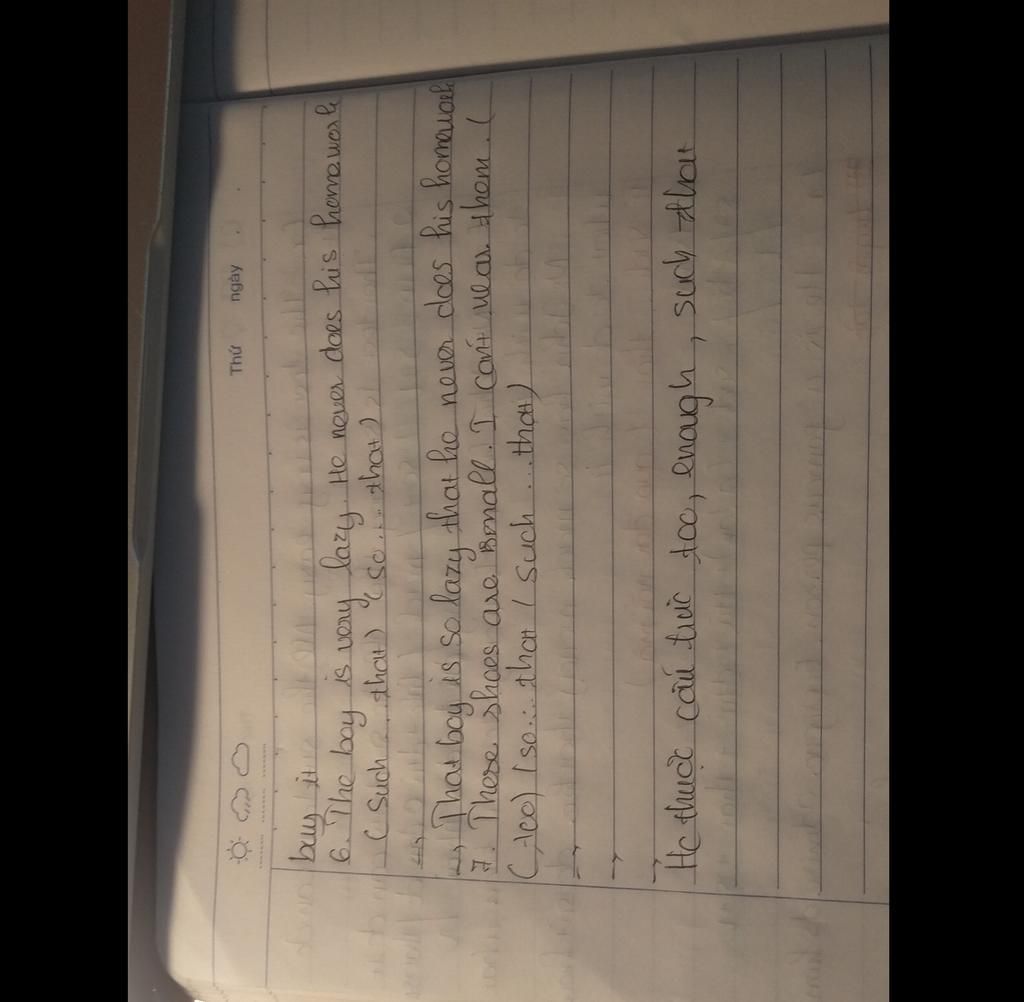 Thứ ngày
buy it
6. The boy is very lazy. He never does his homework
(Such ... that) (so ... that)
→
→ That boy is so lazy that he never does his homework
7. These shoes are small. I can't wear them. (
(too) (so ... that (such ... that)
→
→
→
Học thuộc cấu trúc too, enough, such that